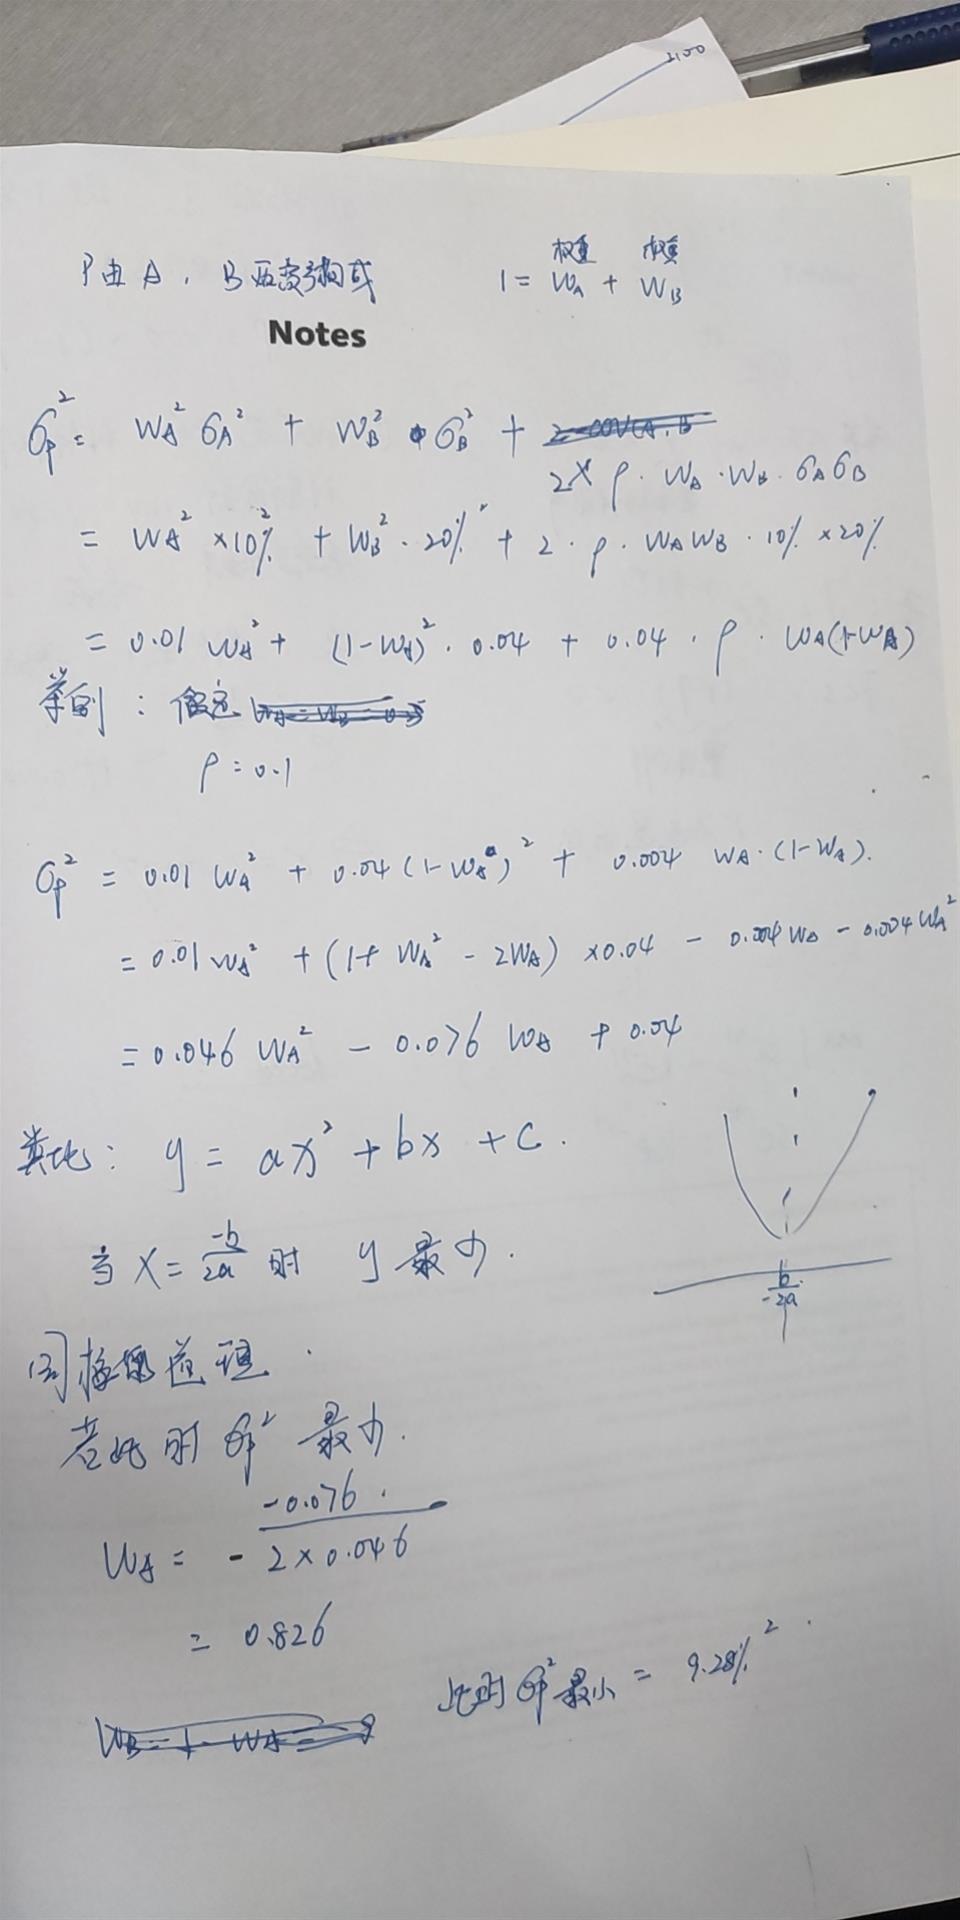 2100
P由A、B两资产构成 1 = W_A + W_B
权重 权重
Notes
σ_P² = W_A² σ_A² + W_B² · σ_B² +
2 × ρ · W_A · W_B · σ_A σ_B
= W_A² × 10%² + W_B² · 20%² + 2 · ρ · W_A W_B · 10% × 20%
= 0.01 W_A² + (1-W_A)² · 0.04 + 0.04 · ρ · W_A(1-W_A)
举例：假定
ρ = 0.1
σ_P² = 0.01 W_A² + 0.04 (1-W_A)² + 0.004 W_A · (1-W_A).
= 0.01 W_A² + (1 + W_A² - 2W_A) × 0.04 - 0.004 W_A - 0.004 W_A²
= 0.046 W_A² - 0.076 W_A + 0.04
类比：y = ax² + bx + c.
当 X = -b/2a 时 y 最小.
-b/2a
同样道理.
若此时 σ_P² 最小.
W_A = - -0.076/(2 × 0.046)
= 0.826
此时 σ_P² 最小 = 9.28%².